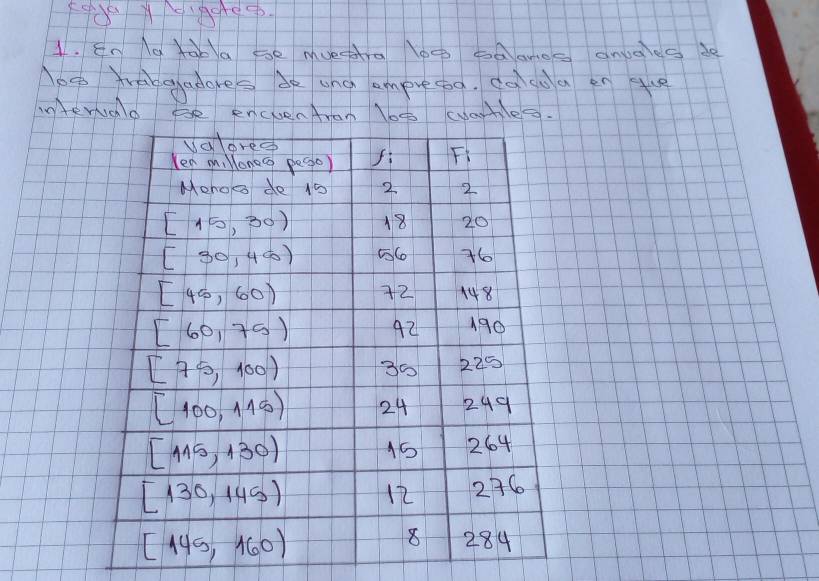 Caja y bigotes.
1. En la tabla se muestra los salarios anuales de
los trabajadores de una empresa. calcula en que
intervalo se encuentran los cuartiles.
valores (en millones peso) fi Fi
Menos de 15 2 2
[15, 30) 18 20
[30, 45) 56 76
[45, 60) 72 148
[60, 75) 42 190
[75, 100) 35 225
[100, 115) 24 249
[115, 130) 15 264
[130, 145) 12 276
[145, 160) 8 284